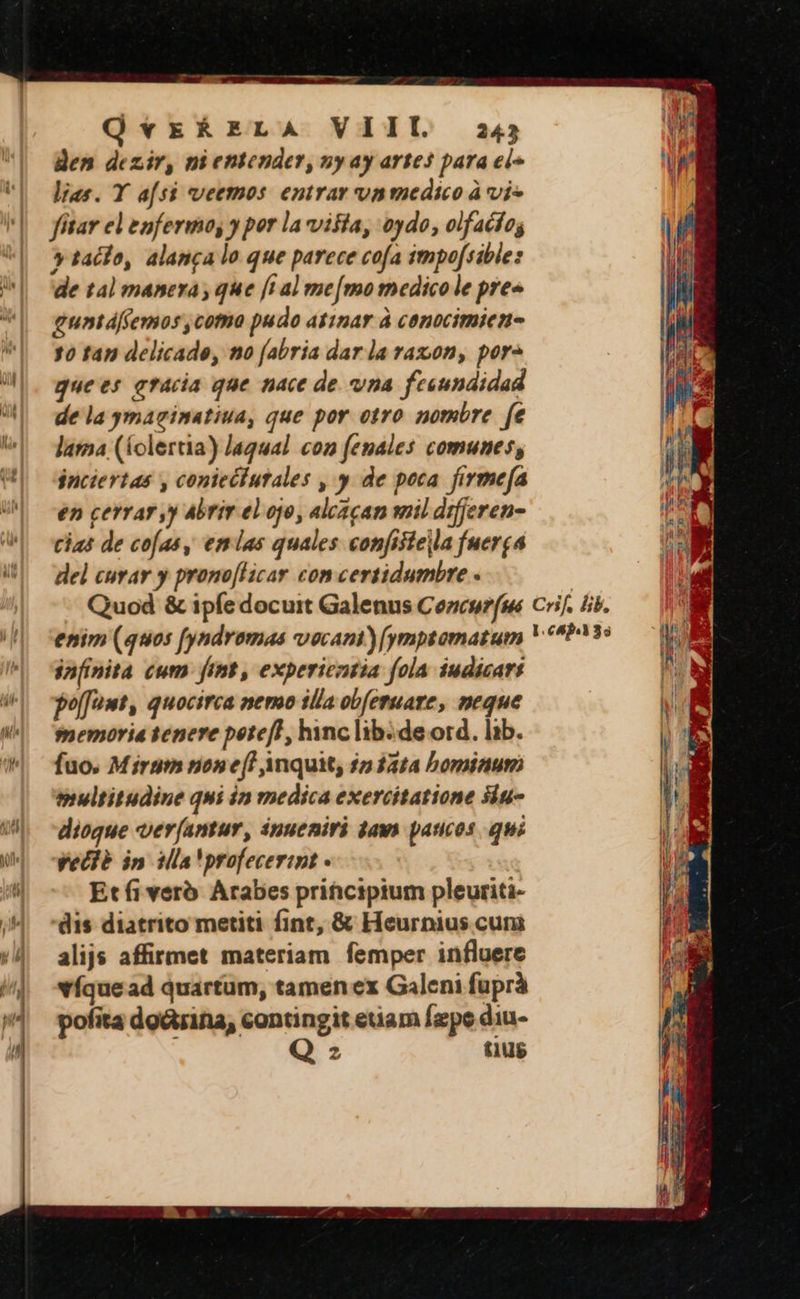 QVERELA VIIII. 243
den dezir, ni entender, ny ay artes para el-
lias. Y assi veemos entrar vn medico à vi-
sitar el enfermo, y por la vista, oydo, olfacto,
y tacto, alança lo que parece cosa impossible:
de tal manera, que si al mesmo medico le pre-
guntássemos, como pudo atinar à conocimien-
to tan delicado, no sabria dar la razon, por-
que es gracia que nace de vna fecundidad
de la ymaginatiua, que por otro nombre se
lama (solertia) laqual con senales comunes,
inciertas, coniecturales, y de poca firmesa
en cerrar, y abrir el ojo, alcáçan mil differen-
cias de cosas, en las quales consiste la fuerça
del curar y pronosticar con certidumbre.
Quod & ipse docuit Galenus Concursus
Cris. lib. 1. cap. 13.
enim (quos syndromas vocant) symptomatum
infinita cum sint, experientia sola iudicari
possunt, quocirca nemo illa obseruare, neque
memoria tenere potest, hinc lib. de ord. lib.
suo. Mirum non est, inquit, in táta hominum
multitudine qui in medica exercitatione stu-
dioque versantur, inueniri tam paucos qui
rectè in illa profecerint.
Et si verò Arabes principium pleuriti-
dis diatrito metiti sint, & Heurnius cum
alijs affirmet materiam semper influere
vsque ad quartum, tamen ex Galeni suprà
posita doctrina, contingit etiam sæpe diu-
Q 2 tius